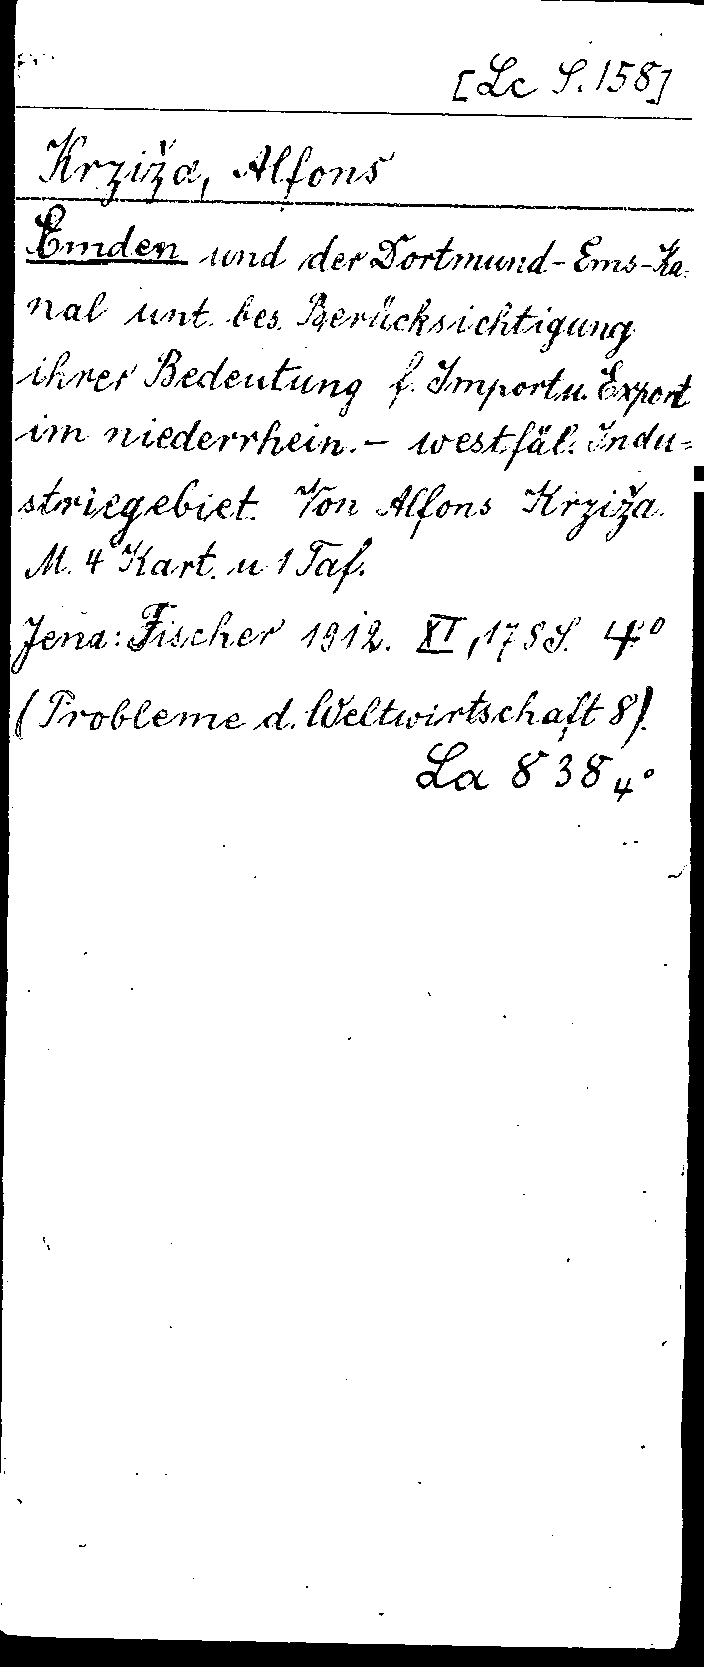 [Lc S. 158]
Krziža, Alfons
Emden und der Dortmund-Ems-Ka-
nal unt. bes. Berücksichtigung
ihrer Bedeutung f. Import u. Export
im niederrhein.- westfäl. Indu-
striegebiet. Von Alfons Krziža.
M. 4 Kart. u 1 Taf.
Jena: Fischer 1912. XI, 178 S. 4°
(Probleme d. Weltwirtschaft 8).
La 838 4°